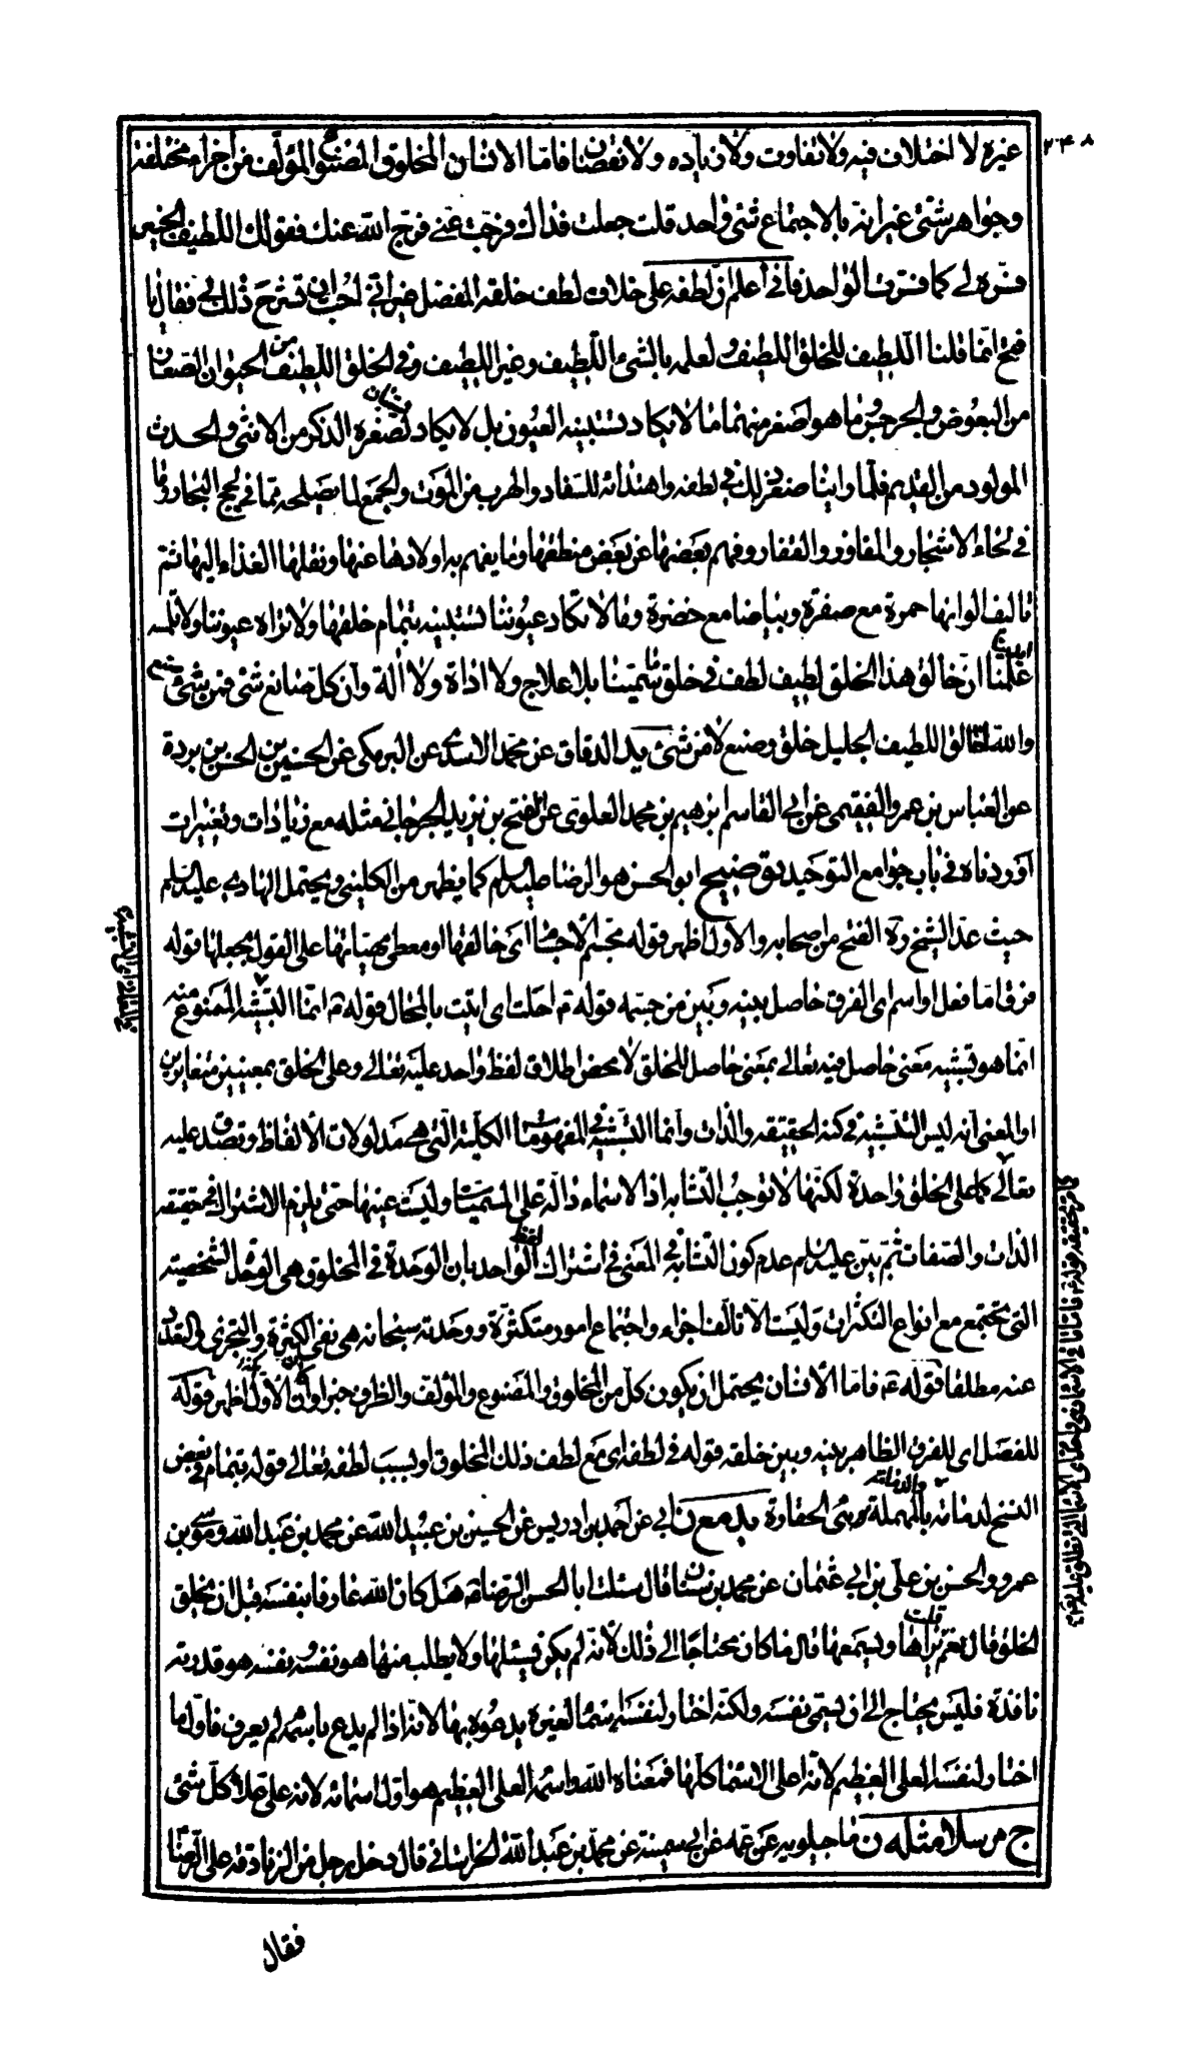 ٢٣٨
غيره لا اختلاف فيه ولا تفاوت ولا زيادة ولا نقصان فامّا الانسان المخلوق المصنوع المؤلّف من اجزاء مختلفة
وجواهر شتّى غير انه بالاجتماع شئ واحد قلت جعلت فداك فرجت عنّي فرّج الله عنك فقولك اللطيف الخبير
فسّره لي كما فسّرت الواحد فاني اعلم انّ لطفه على خلاف لطف خلقه المفضل غير انّي احبّ ان تشرح ذلك لي فقال يا
فتح انّما قلنا اللّطيف للخلق اللطيف ولعلمه بالشئ اللّطيف وغير اللطيف وفي الخلق اللّطيف من الحيوان الصغار
من البعوض والجرجس وما هو اصغر منهما ما لا يكاد تستبينه العيون بل لا يكاد يستبان لصغره الذكر من الانثى والحدث
المولود من القديم فلمّا راينا صغر ذلك في لطفه واهتدائه للسفاد والهرب من الموت والجمع لما يصلحه ممّا في لجج البحار وما
في لحاء الاشجار والمفاوز والقفار وفهم بعضها عن بعض منطقها وما يفهم به اولادها عنها ونقلها الغذاء اليها ثمّ
تاليف الوانها حمرة مع صفرة وبياضا مع خضرة وما لا تكاد عيوننا تستبينه بتمام خلقها ولا تراه عيوننا ولا تلمسه
ايدينا علمنا انّ خالق هذا الخلق لطيف لطف في خلق ما سمّينا بلا علاج ولا اداة ولا آلة وان كل صانع شئ فمن شئ صنع
والله الخالق اللطيف الجليل خلق وصنع لا من شئ يد الدقاق عن محمد الاسدي عن البرمكي عن الحسين بن الحسن بن بردة
عن العباس بن عمرو الفقيمي عن ابي القاسم ابراهيم بن محمد العلوي عن الفتح بن يزيد الجرجاني مثله مع زيادات وتغييرات
اوردناه في باب جوامع التوحيد توضيح ابو الحسن هو الرضا عليه السلم كما يظهر من الكليني ويحتمل الهادي عليه السلم
حيث عدّ الشيخ ره الفتح من اصحابه والاول اظهر قوله مجسّم الاجسام اى خالقها او معطى مهيّاتها على القول بجعلها قوله
فرق امّا فعل او اسم اى الفرق حاصل بينه وبين من جسمه قوله ع احلت اى اتيت بالمحال قوله ع انّما التشبيه الممنوع منه
انّما هو تشبيه معنى حاصل فيه تعالى بمعنى حاصل للخلق لا محض اطلاق لفظ واحد عليه تعالى وعلى الخلق بمعنيين متغايرين
او المعنى انه ليس التشبيه في كنه الحقيقة والذات وانما التشبيه في المفهومات الكلية التي هي مدلولات الالفاظ وتصدق عليه
تعالى كما على الخلق واحدة لكنّها لا توجب التشابه اذ الاسماء دالّة على المسميّات وليست عينها حتى يلزم الاشتراك في حقيقة
الذات والصفات ثم بيّن عليه السلم عدم كون التشابه في المعنى في اشتراك لفظ الواحد بان الوحدة في المخلوق هي الوحدة الشخصية
التي تجتمع مع انواع التكثرات وليست الا تالف اجزاء واجتماع امور متكثرة ووحدته سبحانه هي نفى الكثرة والتجزى والتعدد
عنه مطلقا قوله ع فامّا الانسان يحتمل ان يكون كلّ من المخلوق والمصنوع والمؤلف والظرف خبرا وان كان الاول اظهر قوله
للفصل اى للفرق الظاهر بينه وبين خلقه قوله في لطفه اى مع لطف ذلك المخلوق او بسبب لطفه تعالى قوله بتمام في بعض
النسخ لدمامة بالمهملة وهي الحقارة يد مع ن ابي عن احمد بن ادريس عن الحسين بن عبيد الله عن محمد بن عبد الله وموسى بن
عمرو والحسن بن علي بن ابي عثمان عن محمد بن سنان قال سئلت ابا الحسن الرضا ع هل كان الله عارفا بنفسه قبل ان يخلق
الخلق قال نعم قلت يراها ويسمعها قال ما كان محتاجا الى ذلك لانه لم يكن يسئلها ولا يطلب منها هو نفسه ونفسه هو قدرته
نافذة فليس يحتاج الى ان يسمّى نفسه ولكنّه اختار لنفسه اسماء لغيره يدعوه بها لانه اذا لم يدع باسمه لم يعرف فاول ما
اختار لنفسه العلى العظيم لانه اعلى الاسماء كلّها فمعناه الله واسمه العلى العظيم هو اوّل اسمائه لانه على علا كلّ شئ
ج مرسلا مثله ن ماجيلويه عن عمه عن ابي سمينة عن محمد بن عبد الله الخراساني قال دخل رجل من الزنادقة على الرضا
فقال